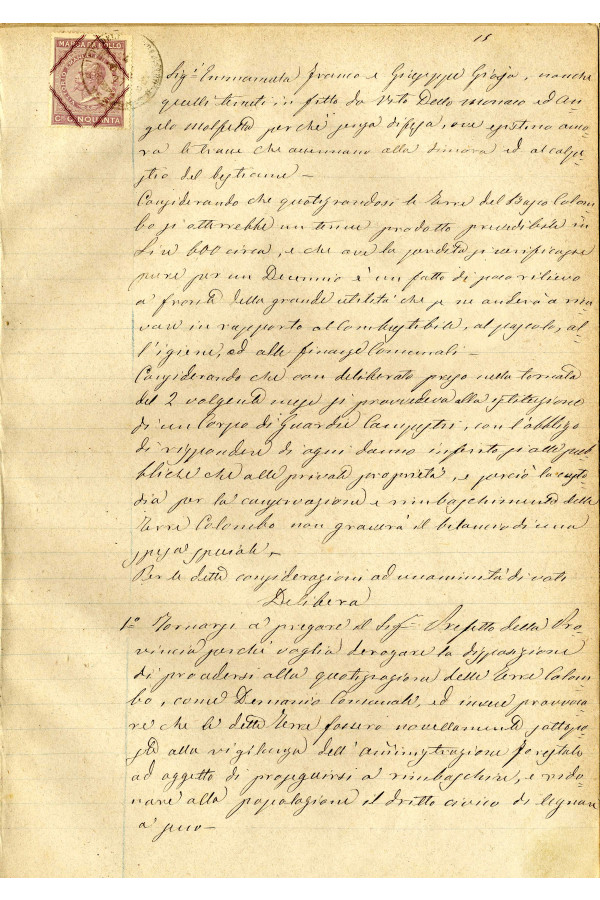 15
MARCA DA BOLLO
Cmi CINQUANTA
Sigi Emmanuela Franco e Giuseppe Gioja, nonchè
quelli tenuti in fitto da Vito Dello monaco ed An-
gelo Molfetta perchè senza difesa, ove esistono anco-
ra le tracce che accennano alla dimora ed al calpe-
stio del bestiame –
Considerando che quotizzandosi le Terre del Bosco Colom-
bo si otterrebbe un tenue prodotto prevedibile in
Lire 600 circa, e che ove la perdita si verificasse
pure per un Decennio è un fatto di poco rilievo
a fronte della grande utilità che se ne anderà a rica-
vare in rapporto al Combustibile, al pascolo, al-
l'igiene, ed alle finanze Comunali –
Considerando che con deliberato preso nella tornata
del 2 volgente mese si provvedeva alla istituzione
di un Corpo di Guardie Campestri, con l'obbligo
di rispondere di ogni danno inferito si alle pub-
bliche che alle private proprietà, e perciò la custo-
dia per la conservazione e rimboschimento delle
Terre Colombo non graverà il bilancio di una
spesa speciale –
Per le dette considerazioni ad unanimità di voti
Delibera
1º Tornarsi a pregare il Sigr Prefetto della Pro-
vincia perchè voglia derogare la disposizione
di procedersi alla quotizzazione delle Terre Colom-
bo, come Demanio Comunale, ed invece provvede-
re che le dette Terre fossero novellamente sottopo-
ste alla vigilanza dell'amministrazione forestale
ad oggetto di proseguirsi a rimboschire, e rido-
nare alla popolazione il dritto civico di legnare
a secco –